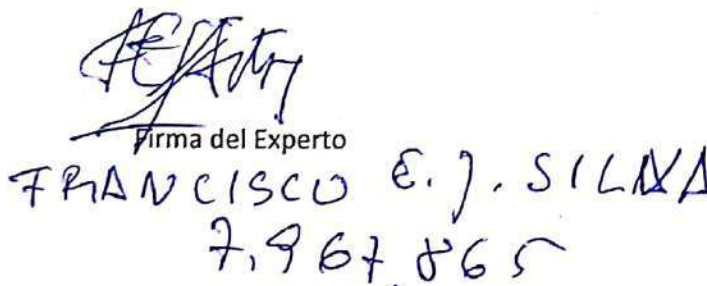 Firma del Experto
FRANCISCO E. J. SILVA
7.967.865